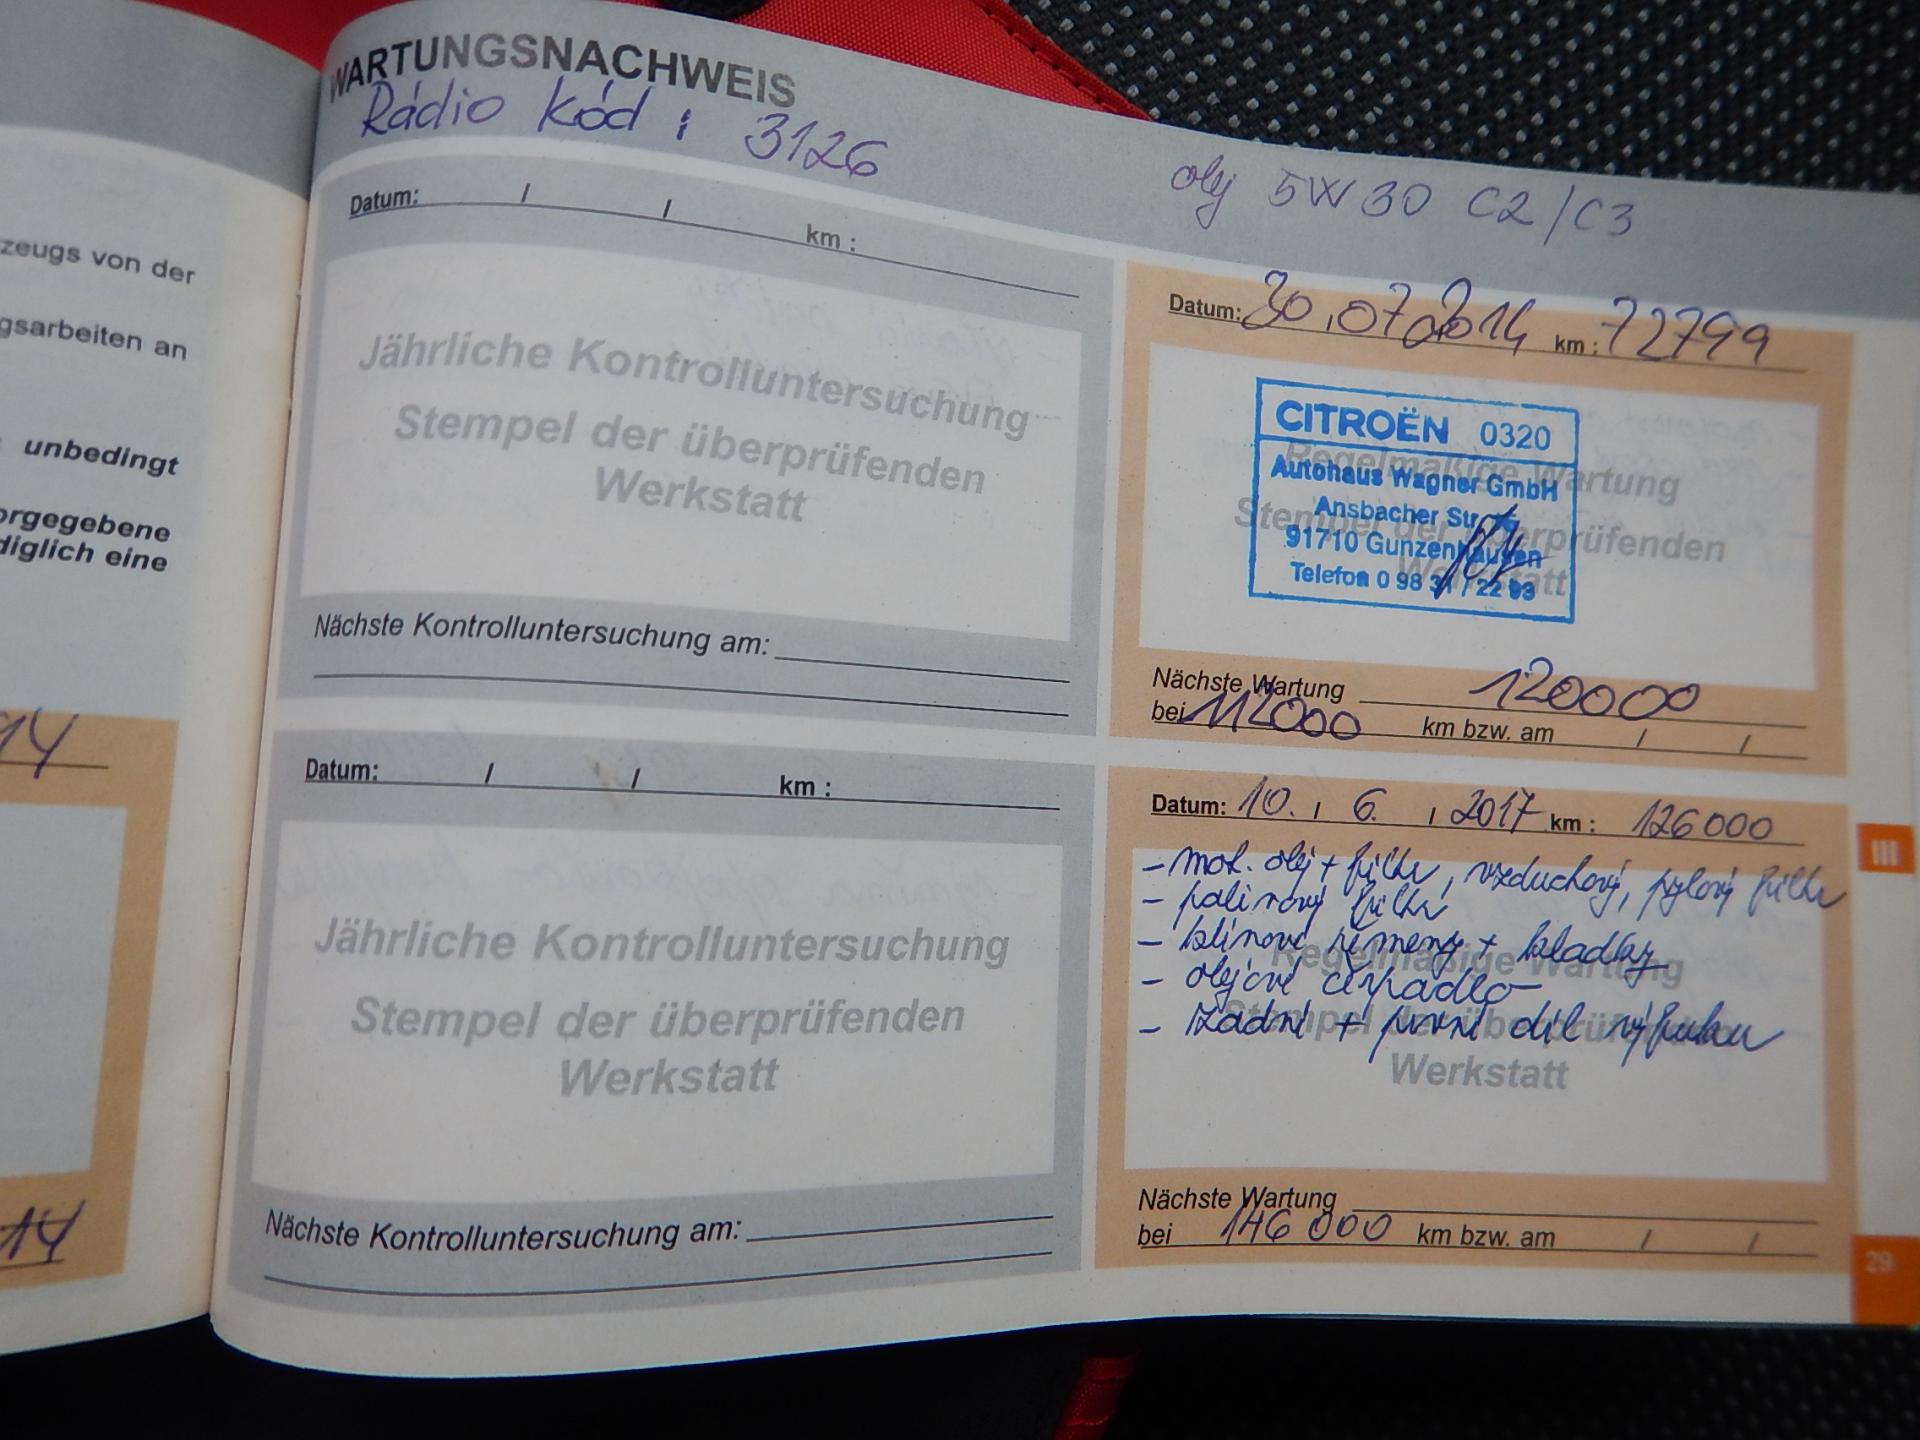 zeugs von der
gsarbeiten an
unbedingt
orgegebene
diglich eine
14
14
WARTUNGSNACHWEIS
Rádio Kód : 3126
olej 5W30 C2/C3
Datum: / / km :
Jährliche Kontrolluntersuchung
Stempel der überprüfenden
Werkstatt
Nächste Kontrolluntersuchung am:
Datum: / / km :
Jährliche Kontrolluntersuchung
Stempel der überprüfenden
Werkstatt
Nächste Kontrolluntersuchung am:
Datum: 30.07.2014 km : 72799
CITROËN 0320
Autohaus Wagner GmbH
Ansbacher Str.
91710 Gunzenhausen
Telefon 0 98 31 / 22 93
Regelmäßige Wartung
Stempel der überprüfenden
Werkstatt
Nächste Wartung 120000
bei 112000 km bzw. am / /
Datum: 10. / 6. / 2017 km : 126000
- mot. olej + filtr, vzduchový, pylový filtr
- palivový filtr
- klínové řemeny + kladky
- olejové čerpadlo
- zadní + první díl výfuku
Regelmäßige Wartung
Stempel der überprüfenden
Werkstatt
Nächste Wartung
bei 146 000 km bzw. am / /
III
29